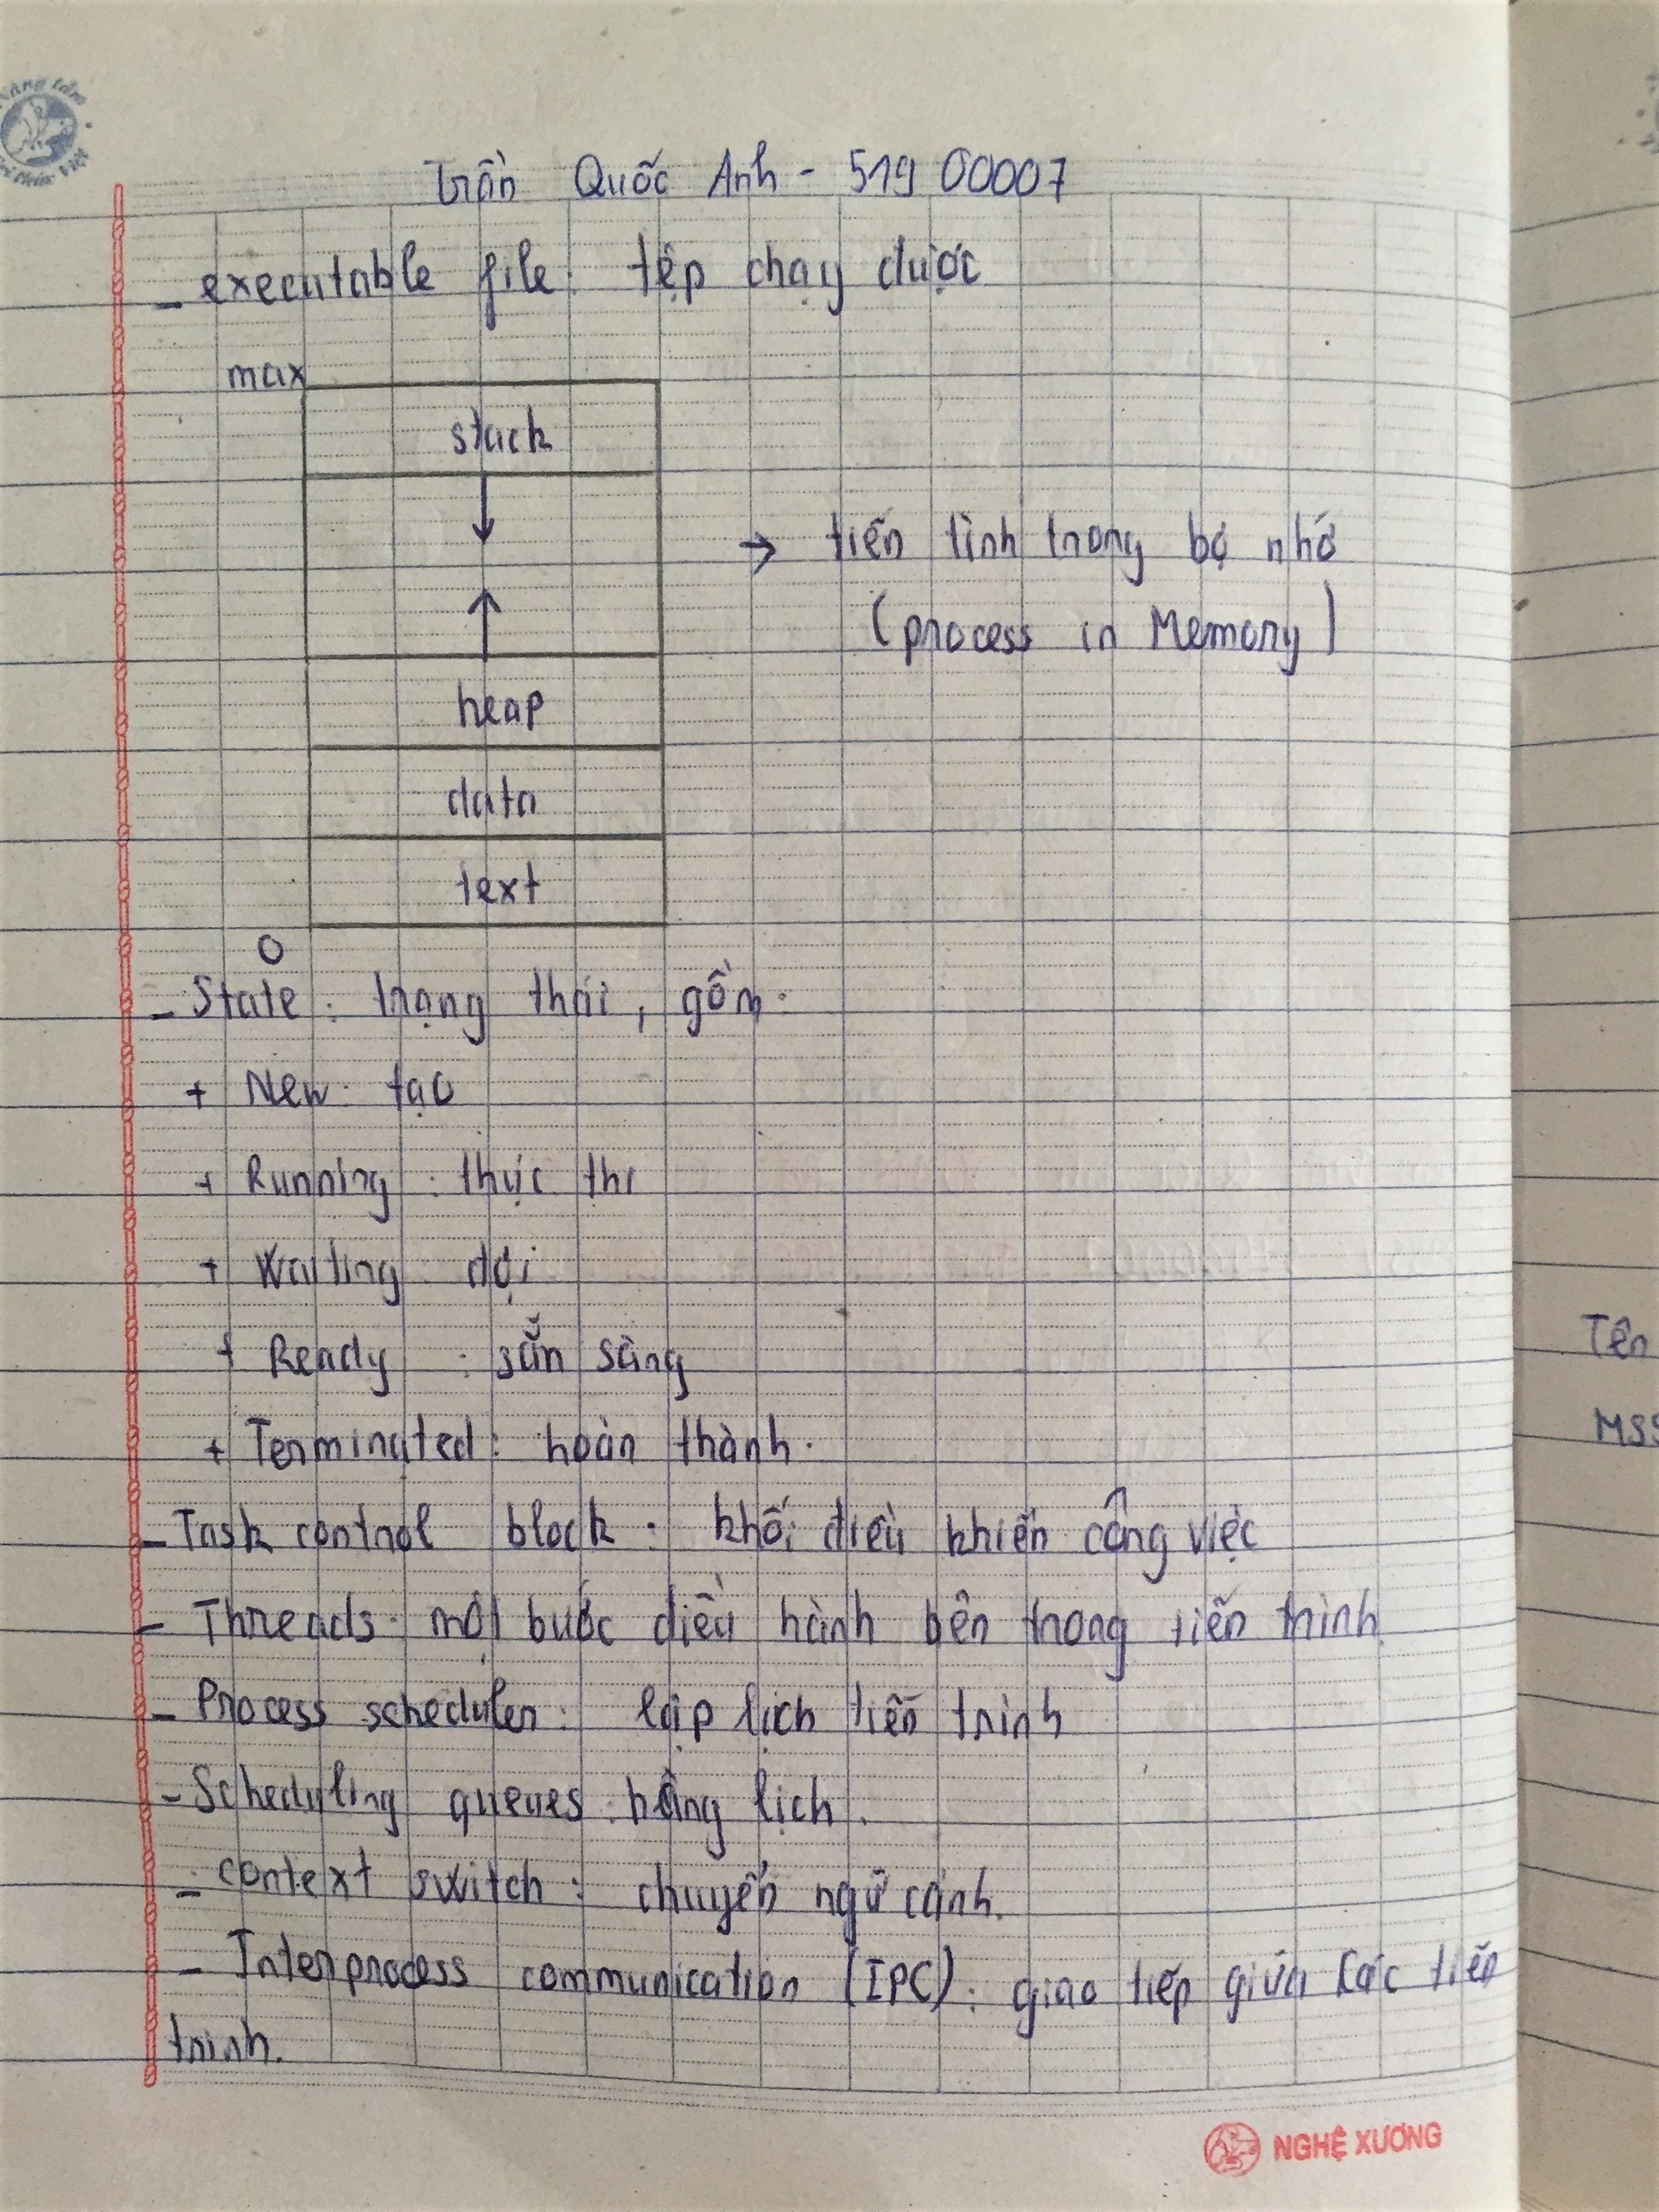 Trần Quốc Anh - 519 00007
- executable file: tệp chạy được
max
stack
→ tiến tình trong bộ nhớ
(process in Memory)
heap
data
text
0
- State: trạng thái, gồm:
+ New: tạo
+ Running: thực thi
+ Waiting: đợi
+ Ready: sẵn sàng
+ Terminated: hoàn thành.
- Task control block: khối điều khiển công việc
- Threads: một bước điều hành bên trong tiến trình.
- Process scheduler: lập lịch tiến trình
- Scheduling queues: hàng lịch.
- context switch: chuyển ngữ cảnh.
- Interprocess communication (IPC): giao tiếp giữa các tiến
trình.
Tên
MSS
NGHỆ XƯƠNG